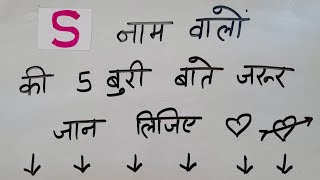 S नाम वालों
की 5 बुरी बाते जरुर
जान लिजिए ♡ ♡
↓ ↓ ↓ ↓ ↓ ↓